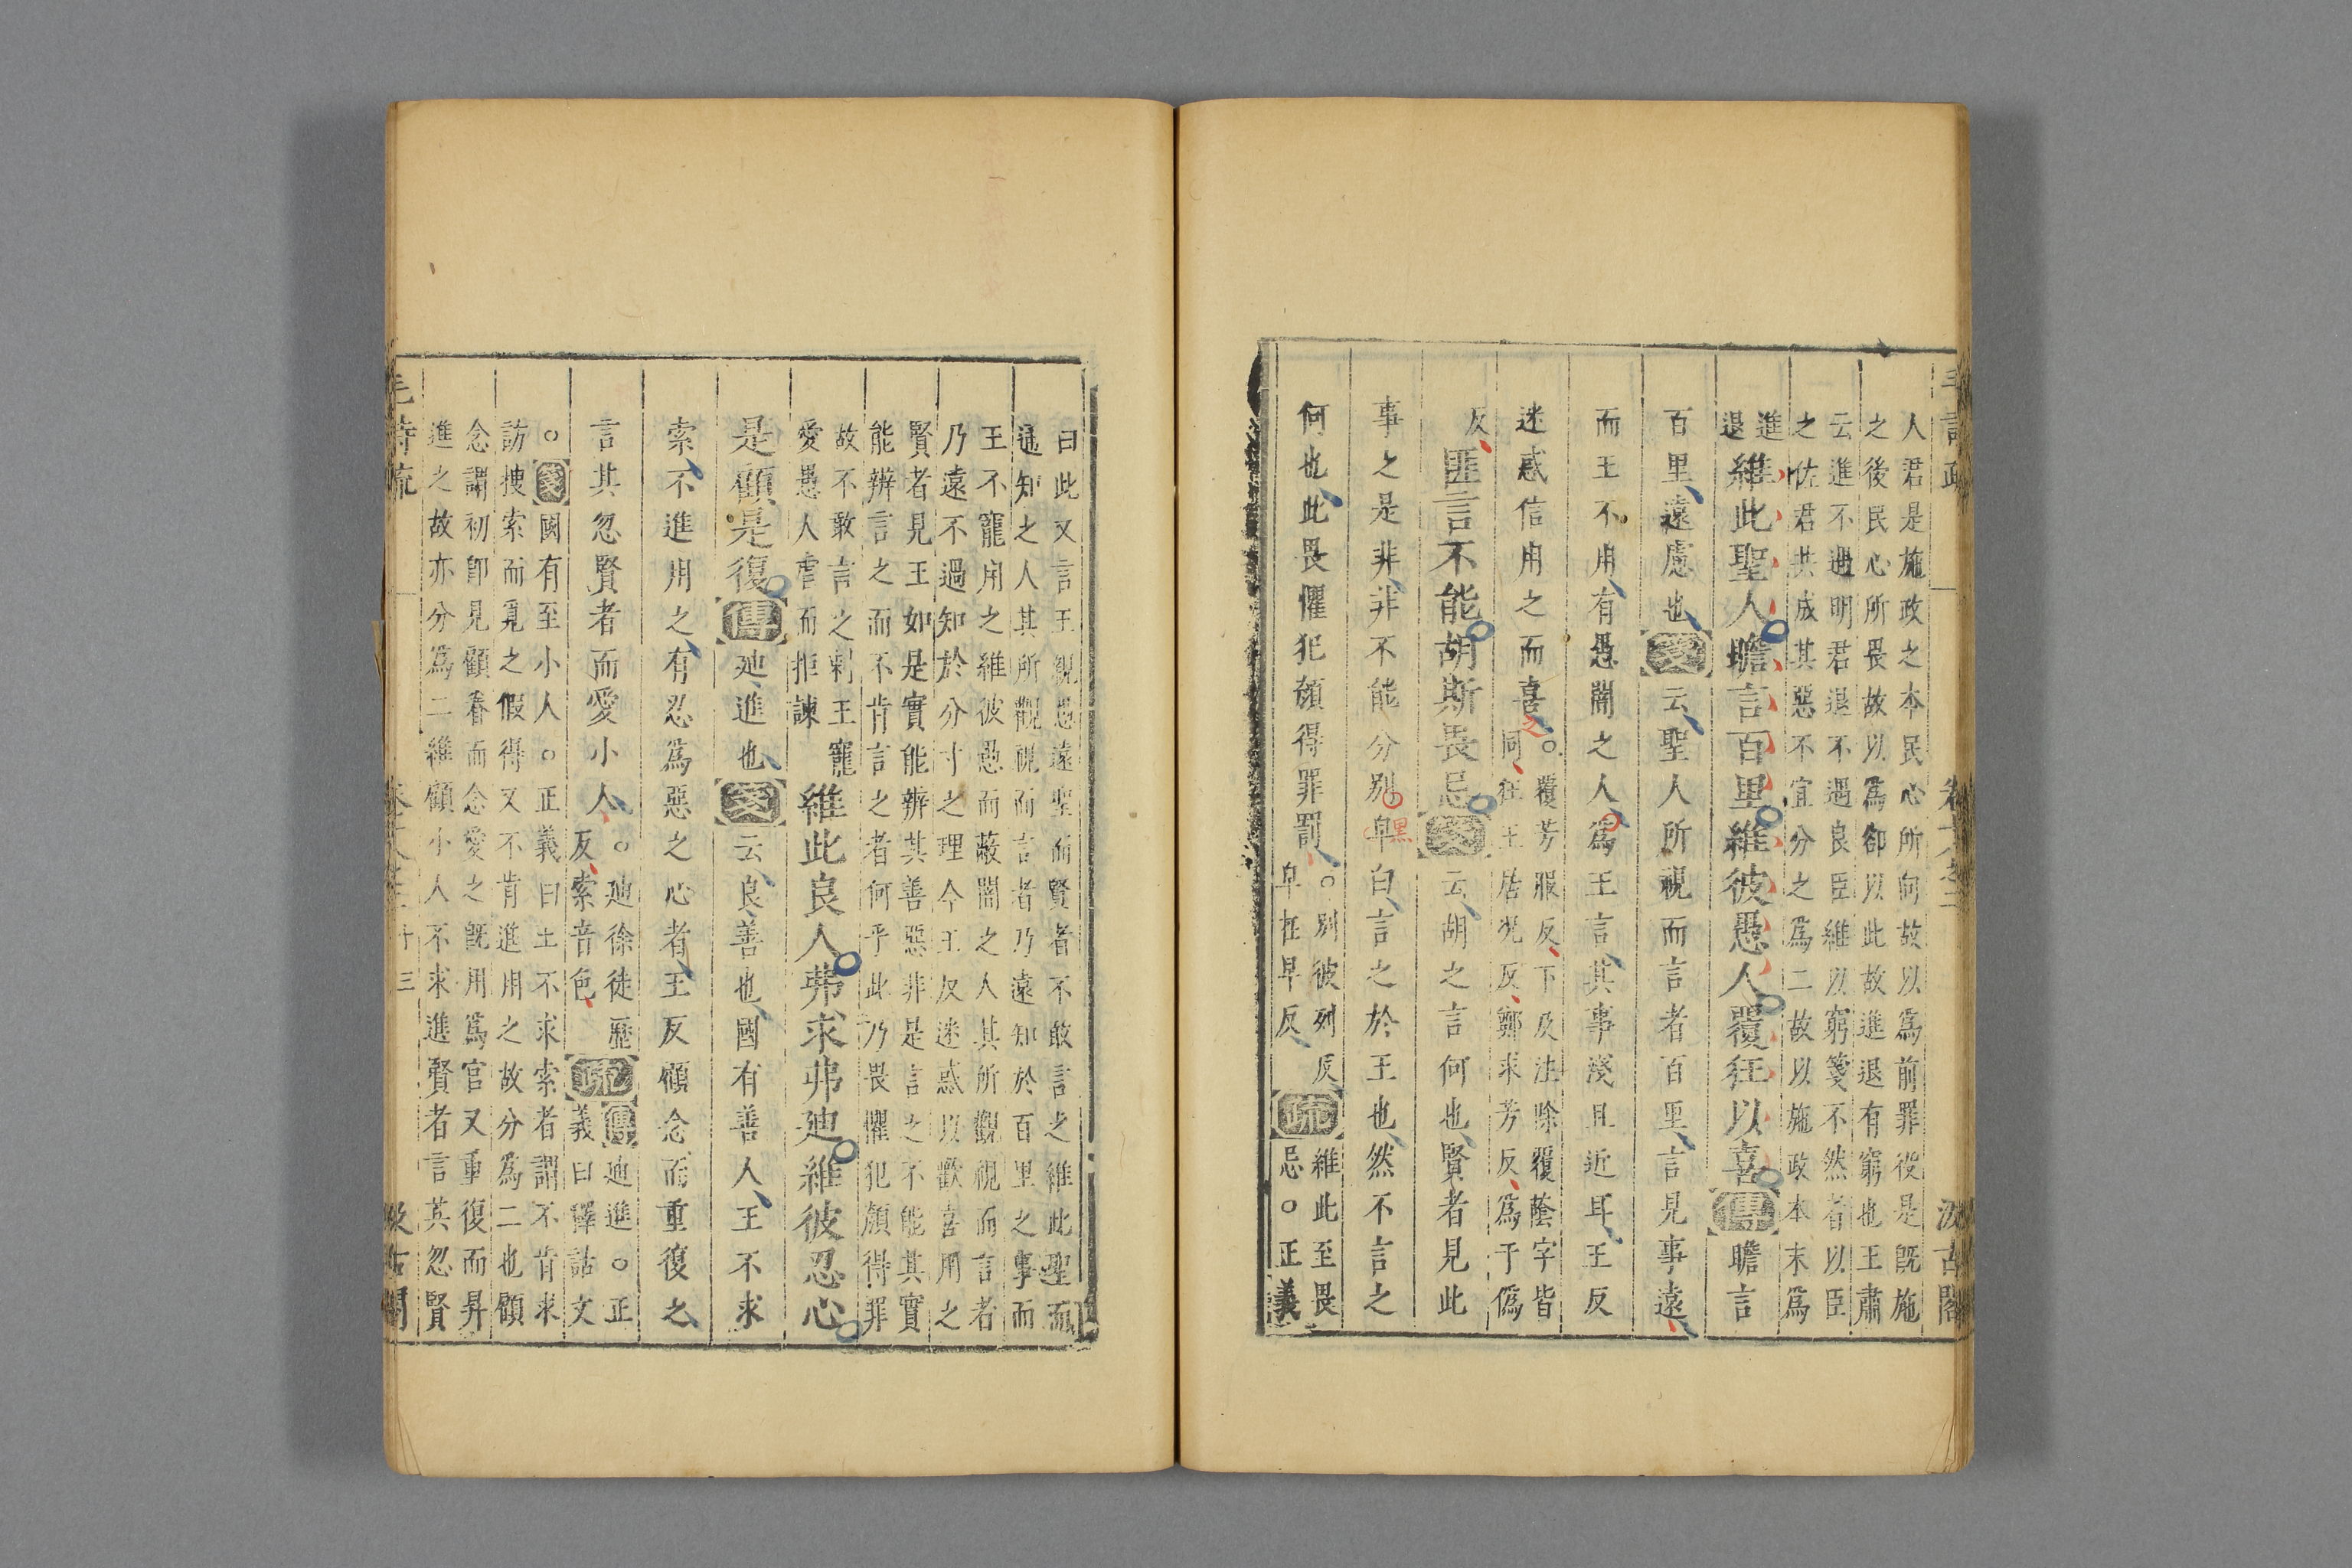 人君是施政之本民心所向故以為前罪役是既施
之後民心所畏故以為卻以此故進退有窮也王肅
云進不遇明君退不遇良臣維以窮箋不然者以臣
之佐君共成其惡不宜分之為二故以施政本末為
進
退
維此聖人瞻言百里維彼愚人覆狂以喜傳瞻言
百里遠慮也箋云聖人所視而言者百里言見事遠
而王不用有愚闇之人為王言其事淺且近耳王反
迷惑信用之而喜之
○覆芳服反下及注除覆蔭字皆
同狂王居況反鄭求芳反為于偽
反
匪言不能胡斯畏忌箋云胡之言何也賢者見此
事之是非非不能分別皁白言之於王也然不言之
黑
何也此畏懼犯顏得罪罰
○別彼列反
皁在早反
疏
維此至畏
忌○正義
曰此又言王親愚遠聖而賢者不敢言之維此聖而
通知之人其所觀視而言者乃遠知於百里之事而
王不寵用之維彼愚而蔽闇之人其所觀視而言者
乃遠不過知於分寸之理今王反迷惑以歡喜用之
賢者見王如是實能辨其善惡非是言之不能其實
能辨言之而不肯言之者何乎此乃畏懼犯顏得罪
故不敢言之刺王寵
愛愚人虐而拒諫
維此良人弗求弗迪維彼忍心
是顧是復傳迪進也箋云良善也國有善人王不求
索不進用之有忍為惡之心者王反顧念而重復之
言其忽賢者而愛小人
○迪徐徒歷
反索音色
疏
傳迪進○正
義曰釋詁文
○箋國有至小人○正義曰王不求索者謂不肯求
訪搜索而覓之假得又不肯進用之故分為二也顧
念謂初即見顧眷而念愛之既用為官又重復而昇
進之故亦分為二維顧小人不求進賢者言其忽賢
毛詩疏
卷十八之二
十三
汲古閣